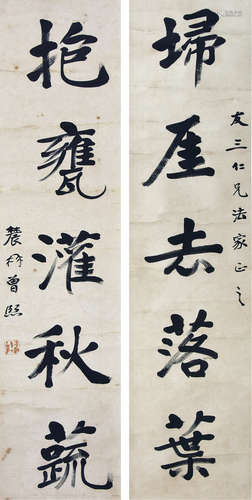 埽厓去落葉
友三仁兄法家正之
抱甕灌秋蔬
農髯曾熙